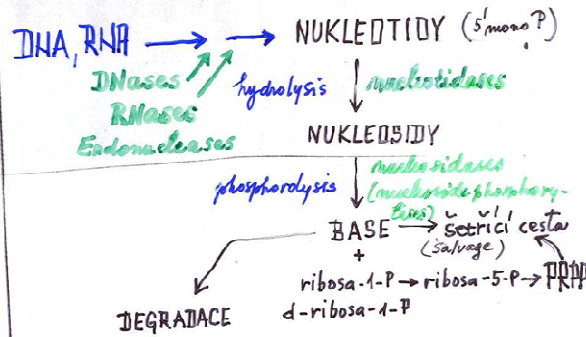 DNA, RNA → → NUKLEOTIDY (5' mono P)
DNases
RNases
Endonucleases
hydrolysis
nucleotidases
NUKLEOSIDY
phosphorolysis
nucleosidases
(nucleosidephosphory-
lases)
BASE → šetřící cesta
(salvage)
+
ribosa-1-P → ribosa-5-P → PRPP
d-ribosa-1-P
DEGRADACE